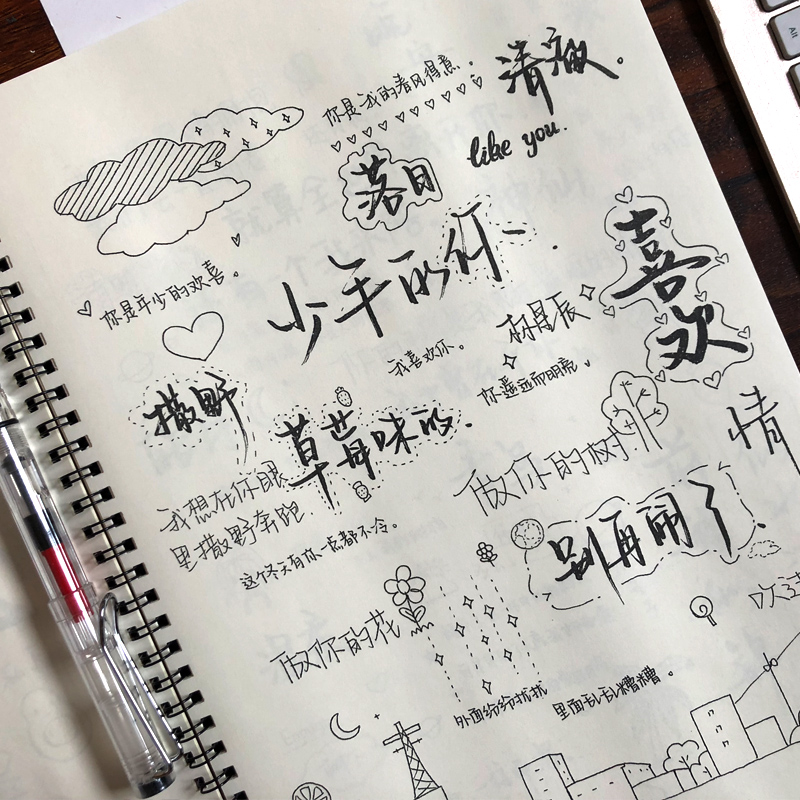 你是我的春风得意。
清澈。
落日
like you.
少年的你
喜欢
你是年少的欢喜。
杨星辰
我喜欢你。
你遥远而明亮
撒野
草莓味的.
情
做你的树
我想在你眼
里撒野奔跑
别再闹了、
这个冬天有你一点都不冷。
做你的花
外面纷纷扰扰
里面乱乱糟糟。
Alt